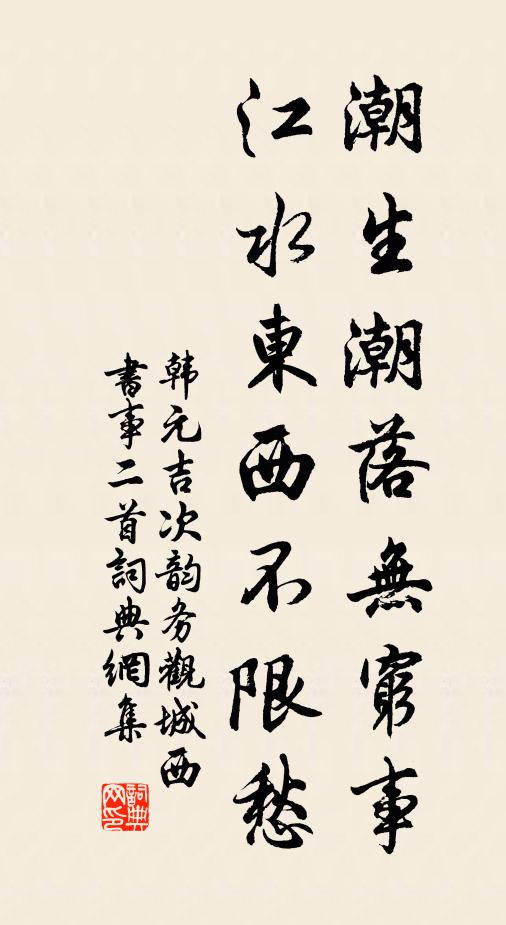 潮生潮落無窮事
江水東西不限愁
韩元吉次韵务觀城西
書事二首詞典網集
詞典网印